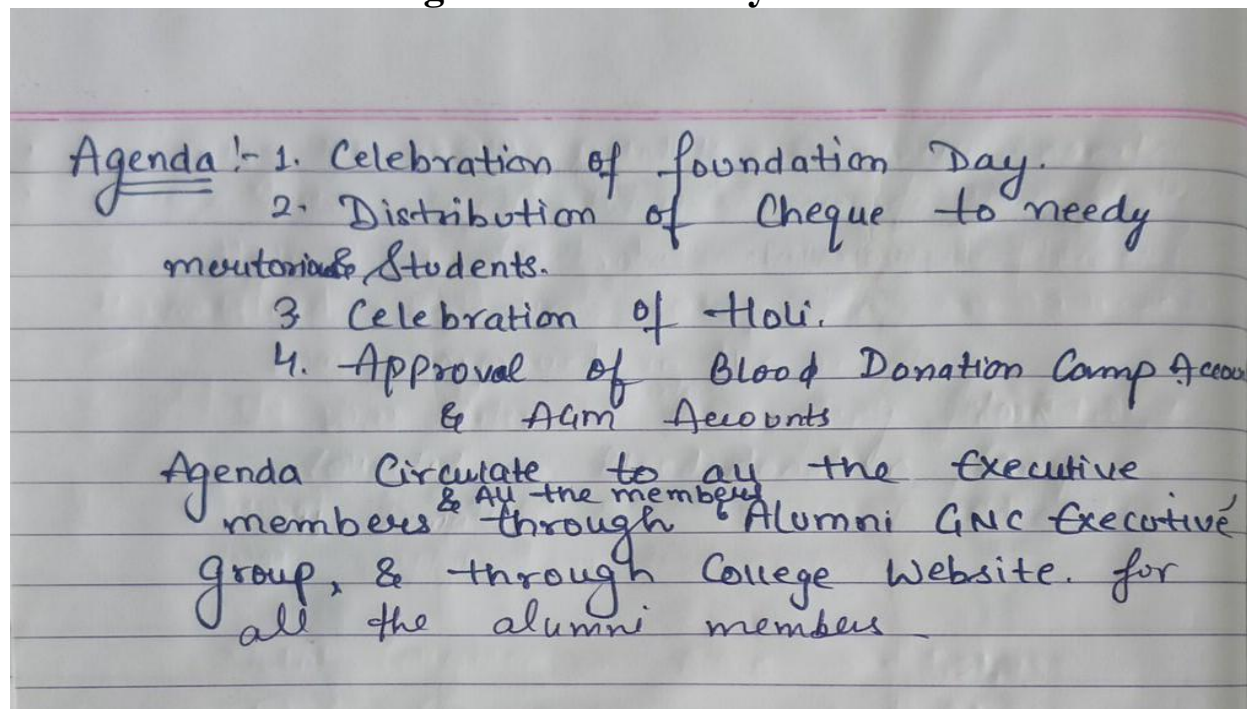 Agenda :- 1. Celebration of foundation Day.
2. Distribution of Cheque to needy
meritorious Students.
3 Celebration of Holi.
4. Approval of Blood Donation Camp Accou
& AGM Accounts
Agenda Circulate to all the Executive
& All the members
members through 'Alumni GNC Executive'
group, & through College Website. for
all the alumni members